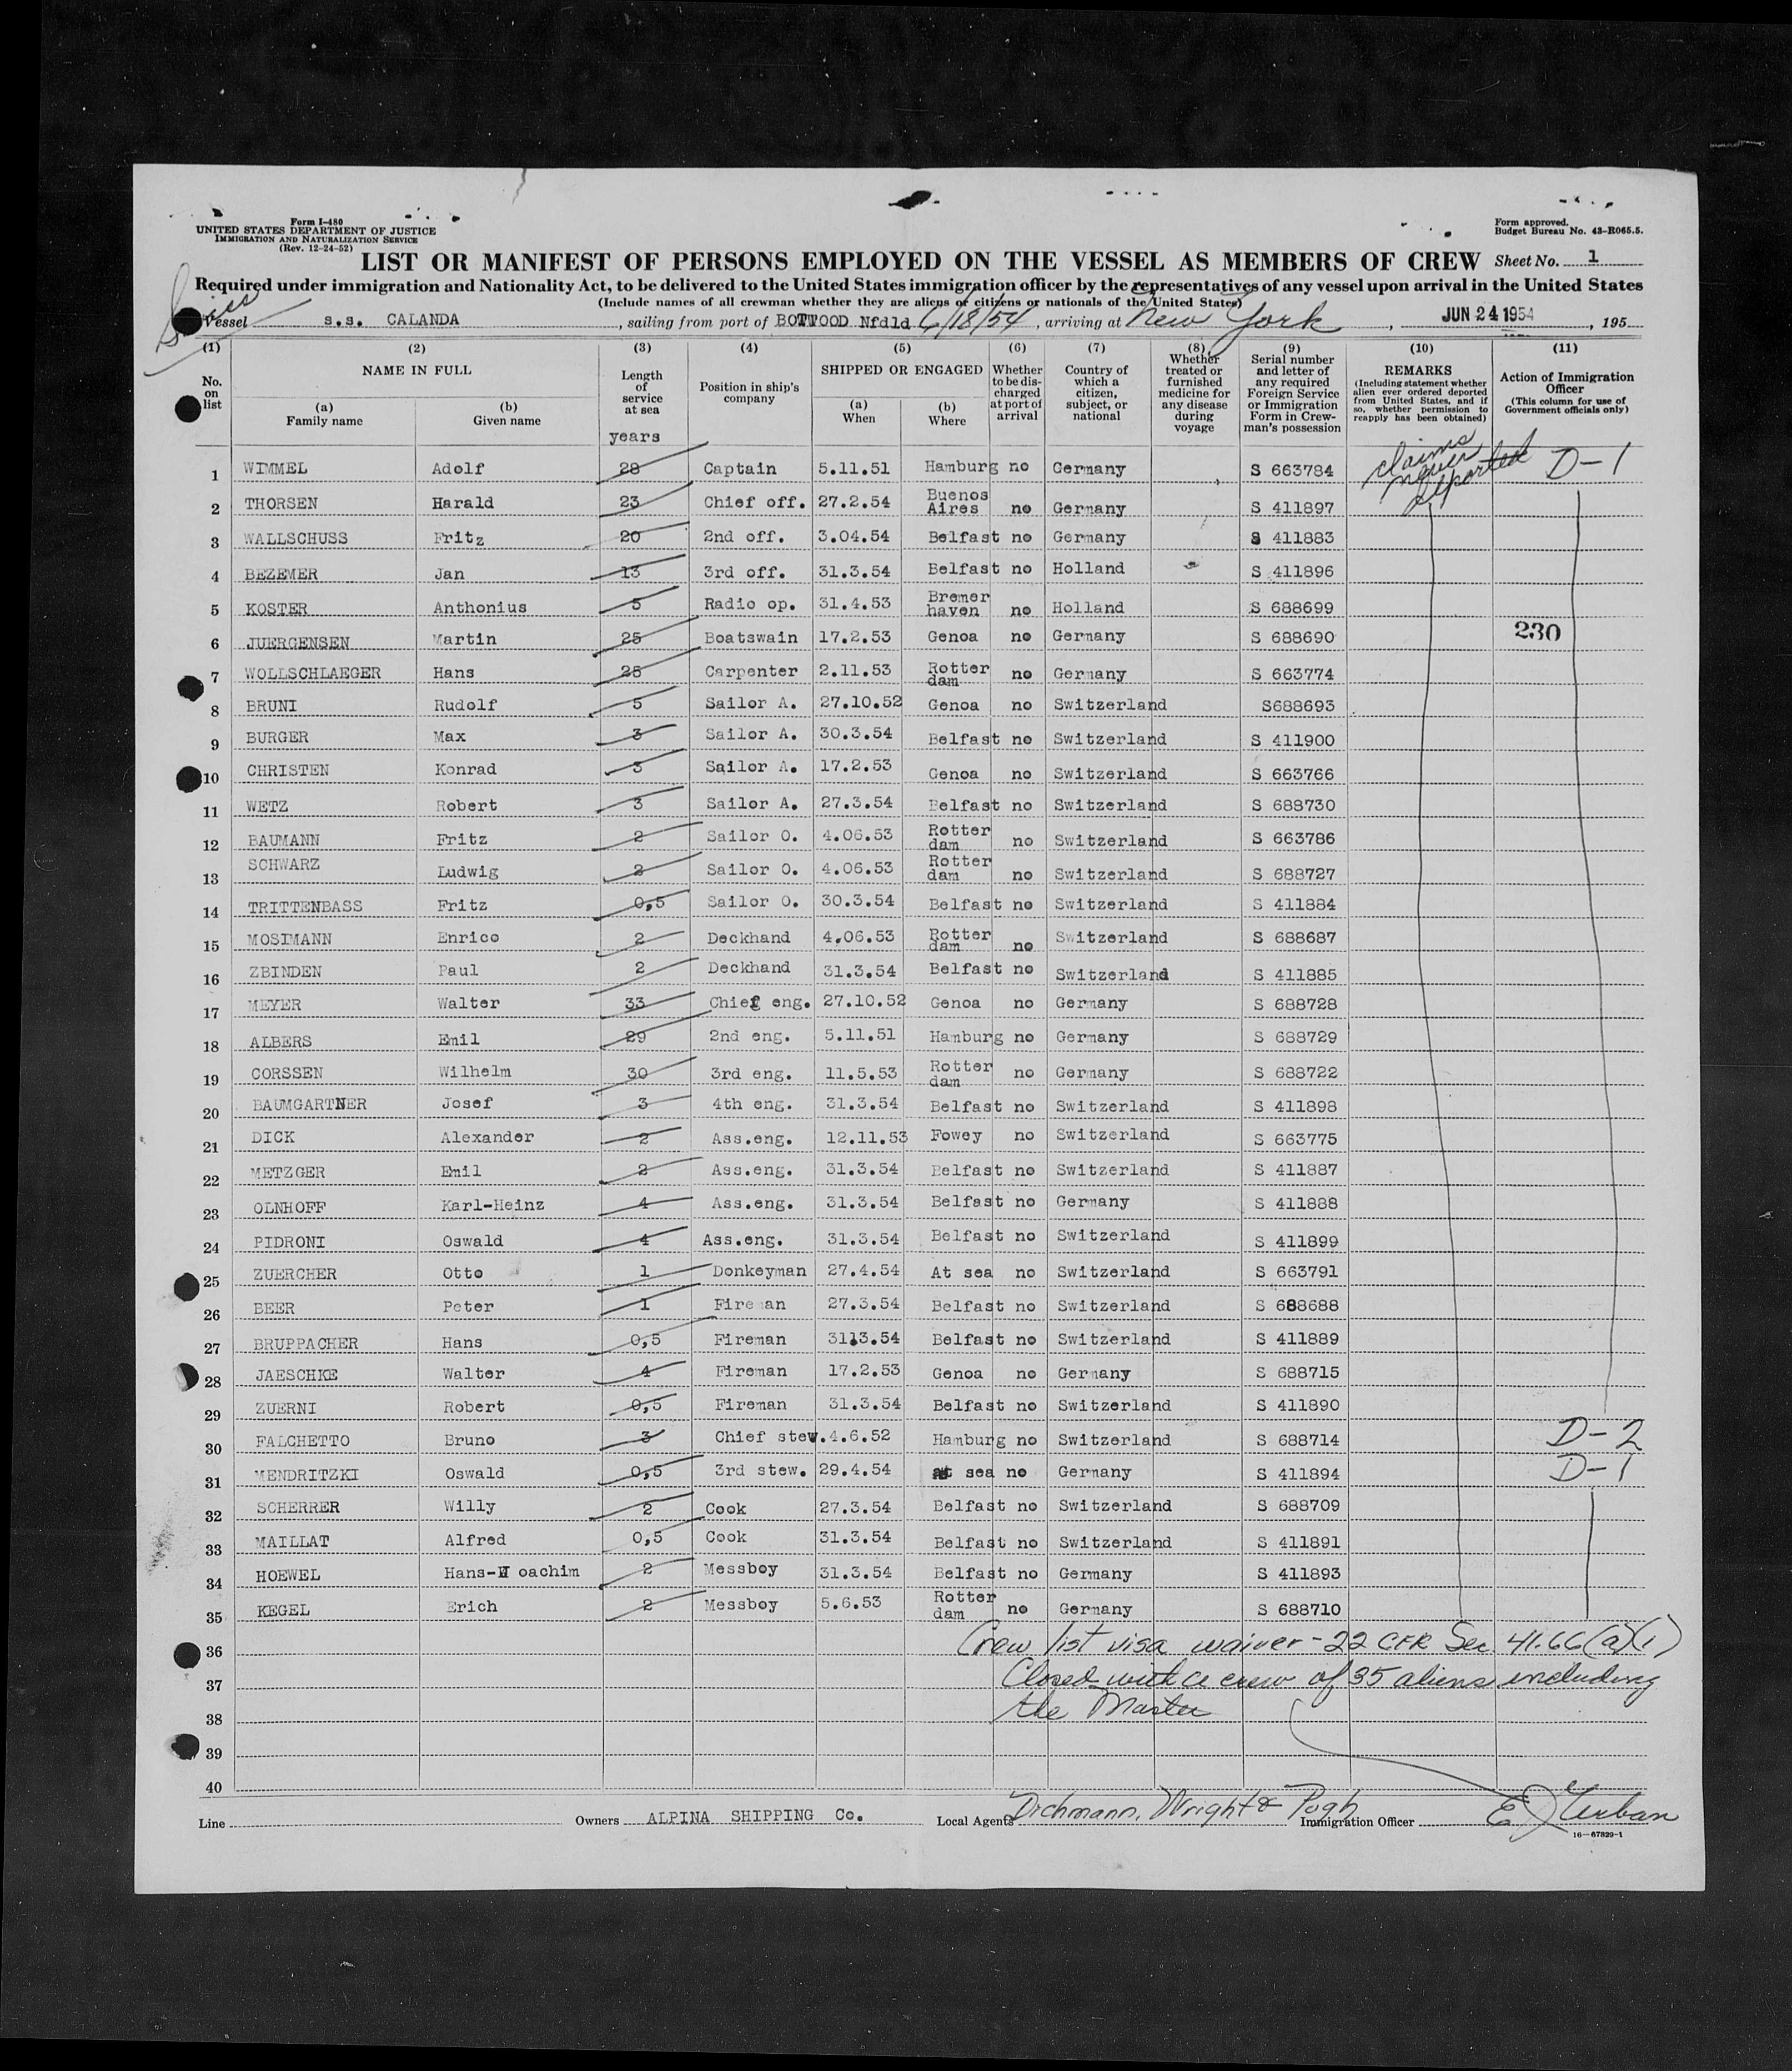 Form I-480
UNITED STATES DEPARTMENT OF JUSTICE
IMMIGRATION AND NATURALIZATION SERVICE
(Rev. 12-24-52)
Form approved.
Budget Bureau No. 43-R065.5.
LIST OR MANIFEST OF PERSONS EMPLOYED ON THE VESSEL AS MEMBERS OF CREW Sheet No. 1
Required under immigration and Nationality Act, to be delivered to the United States immigration officer by the representatives of any vessel upon arrival in the United States
(Include names of all crewman whether they are aliens or citizens or nationals of the United States)
Swiss
Vessel s.s. CALANDA, sailing from port of BOTWOOD Nfdld 6/18/54, arriving at New York, JUN 24 1954, 195
(1) No. on list (2) NAME IN FULL (a) Family name (b) Given name (3) Length of service at sea years (4) Position in ship's company (5) SHIPPED OR ENGAGED (a) When (b) Where (6) Whether to be discharged at port of arrival (7) Country of which a citizen, subject, or national (8) Whether treated or furnished medicine for any disease during voyage (9) Serial number and letter of any required Foreign Service or Immigration Form in Crewman's possession (10) REMARKS (Including statement whether alien ever ordered deported from United States, and if so, whether permission to reapply has been obtained) (11) Action of Immigration Officer (This column for use of Government officials only)
1 WIMMEL Adolf 28 Captain 5.11.51 Hamburg no Germany S 663784 claims never deported D-1
2 THORSEN Harald 23 Chief off. 27.2.54 Buenos Aires no Germany S 411897
3 WALLSCHUSS Fritz 20 2nd off. 3.04.54 Belfast no Germany S 411883
4 BEZEMER Jan 13 3rd off. 31.3.54 Belfast no Holland S 411896
5 KOSTER Anthonius 5 Radio op. 31.4.53 Bremer haven no Holland S 688699
6 JUERGENSEN Martin 25 Boatswain 17.2.53 Genoa no Germany S 688690 230
7 WOLLSCHLAEGER Hans 25 Carpenter 2.11.53 Rotter dam no Germany S 663774
8 BRUNI Rudolf 5 Sailor A. 27.10.52 Genoa no Switzerland S688693
9 BURGER Max 3 Sailor A. 30.3.54 Belfast no Switzerland S 411900
10 CHRISTEN Konrad 3 Sailor A. 17.2.53 Genoa no Switzerland S 663766
11 WETZ Robert 3 Sailor A. 27.3.54 Belfast no Switzerland S 688730
12 BAUMANN Fritz 2 Sailor O. 4.06.53 Rotter dam no Switzerland S 663786
13 SCHWARZ Ludwig 2 Sailor O. 4.06.53 Rotter dam no Switzerland S 688727
14 TRITTENBASS Fritz 0,5 Sailor O. 30.3.54 Belfast no Switzerland S 411884
15 MOSIMANN Enrico 2 Deckhand 4.06.53 Rotter dam no Switzerland S 688687
16 ZBINDEN Paul 2 Deckhand 31.3.54 Belfast no Switzerland S 411885
17 MEYER Walter 33 Chief eng. 27.10.52 Genoa no Germany S 688728
18 ALBERS Emil 29 2nd eng. 5.11.51 Hamburg no Germany S 688729
19 CORSSEN Wilhelm 30 3rd eng. 11.5.53 Rotter dam no Germany S 688722
20 BAUMGARTNER Josef 3 4th eng. 31.3.54 Belfast no Switzerland S 411898
21 DICK Alexander 2 Ass.eng. 12.11.53 Fowey no Switzerland S 663775
22 METZGER Emil 2 Ass.eng. 31.3.54 Belfast no Switzerland S 411887
23 OLNHOFF Karl-Heinz 4 Ass.eng. 31.3.54 Belfast no Germany S 411888
24 PIDRONI Oswald 4 Ass.eng. 31.3.54 Belfast no Switzerland S 411899
25 ZUERCHER Otto 1 Donkeyman 27.4.54 At sea no Switzerland S 663791
26 BEER Peter 1 Fireman 27.3.54 Belfast no Switzerland S 688688
27 BRUPPACHER Hans 0,5 Fireman 31.3.54 Belfast no Switzerland S 411889
28 JAESCHKE Walter 4 Fireman 17.2.53 Genoa no Germany S 688715
29 ZUERNI Robert 0,5 Fireman 31.3.54 Belfast no Switzerland S 411890
30 FALCHETTO Bruno 3 Chief stew. 4.6.52 Hamburg no Switzerland S 688714 D-2
31 MENDRITZKI Oswald 0,5 3rd stew. 29.4.54 at sea no Germany S 411894 D-1
32 SCHERRER Willy 2 Cook 27.3.54 Belfast no Switzerland S 688709
33 MAILLAT Alfred 0,5 Cook 31.3.54 Belfast no Switzerland S 411891
34 HOEWEL Hans-J oachim 2 Messboy 31.3.54 Belfast no Germany S 411893
35 KEGEL Erich 2 Messboy 5.6.53 Rotter dam no Germany S 688710
36 Crew list visa waiver - 22 CFR Sec. 41.66(a)(1)
37 Closed with a crew of 35 aliens including
38 the Master
39
40
Line Owners ALPINA SHIPPING Co. Local Agents Dichmann, Wright & Pugh Immigration Officer E J Urban
16-67829-1